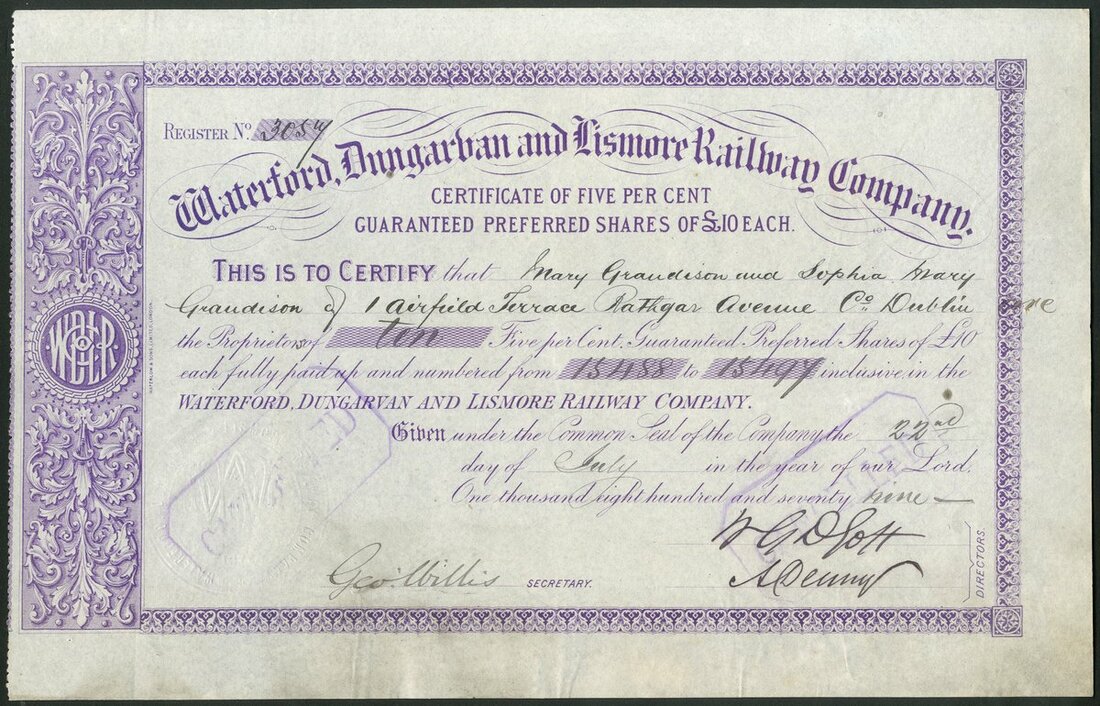 REGISTER No. 3054
Waterford, Dungarvan and Lismore Railway Company.
CERTIFICATE OF FIVE PER CENT
GUARANTEED PREFERRED SHARES OF £10 EACH.
THIS IS TO CERTIFY that Mary Grandison and Sophia Mary
Grandison of 1 Airfield Terrace Rathgar Avenue Co. Dublin
the Proprietors of ten Five per Cent. Guaranteed Preferred Shares of £10
each fully paid up and numbered from 15488 to 15497 inclusive in the
WATERFORD, DUNGARVAN AND LISMORE RAILWAY COMPANY.
Given under the Common Seal of the Company the 22nd
day of July in the year of our Lord
One thousand eight hundred and seventy nine
Geo. Willis SECRETARY.
A Denny
DIRECTORS
WATERLOW & SONS LIMITED, LONDON.